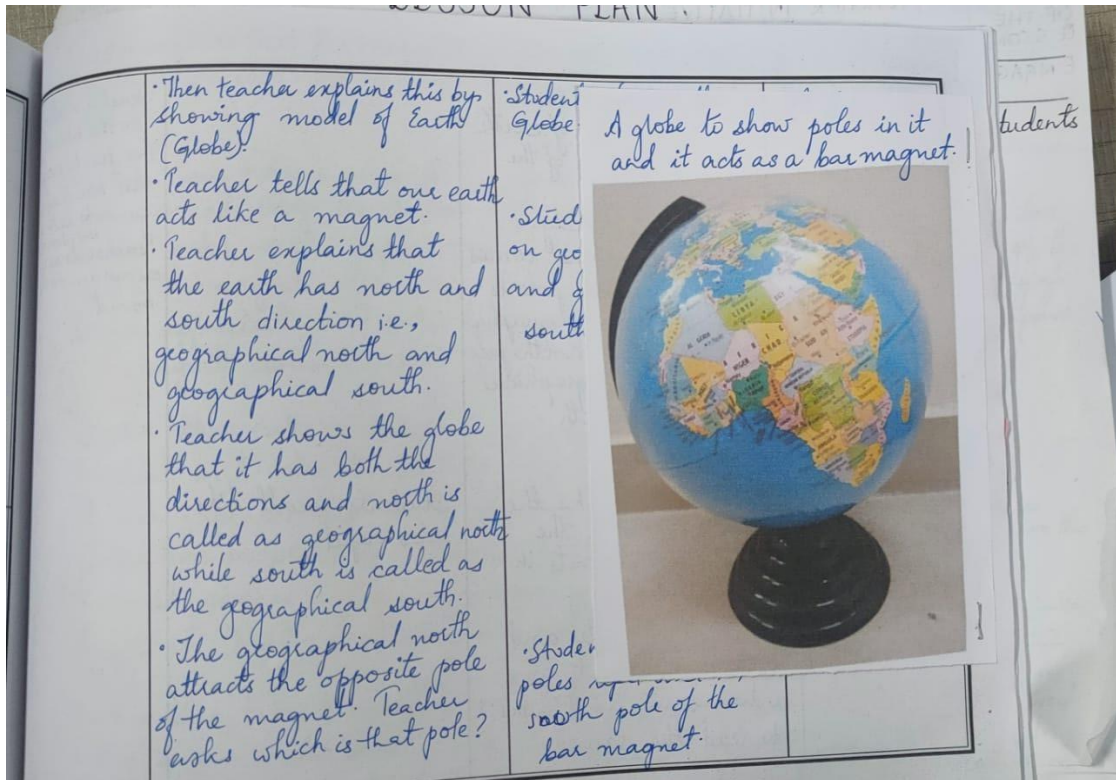 LESSON PLAN.
· Then teacher explains this by
showing model of Earth
(Globe).
· Teacher tells that our earth
acts like a magnet.
· Teacher explains that
the earth has north and
south direction i.e.,
geographical north and
geographical south.
· Teacher shows the globe
that it has both the
directions and north is
called as geographical north
while south is called as
the geographical south.
· The geographical north
attracts the opposite pole
of the magnet. Teacher
asks which is that pole?
· Student
Globe
· Stud
on geo
and g
south
· Studen
poles
south pole of the
bar magnet.
A globe to show poles in it
and it acts as a bar magnet.
LIBYA
NIGER
CHAD
tudents